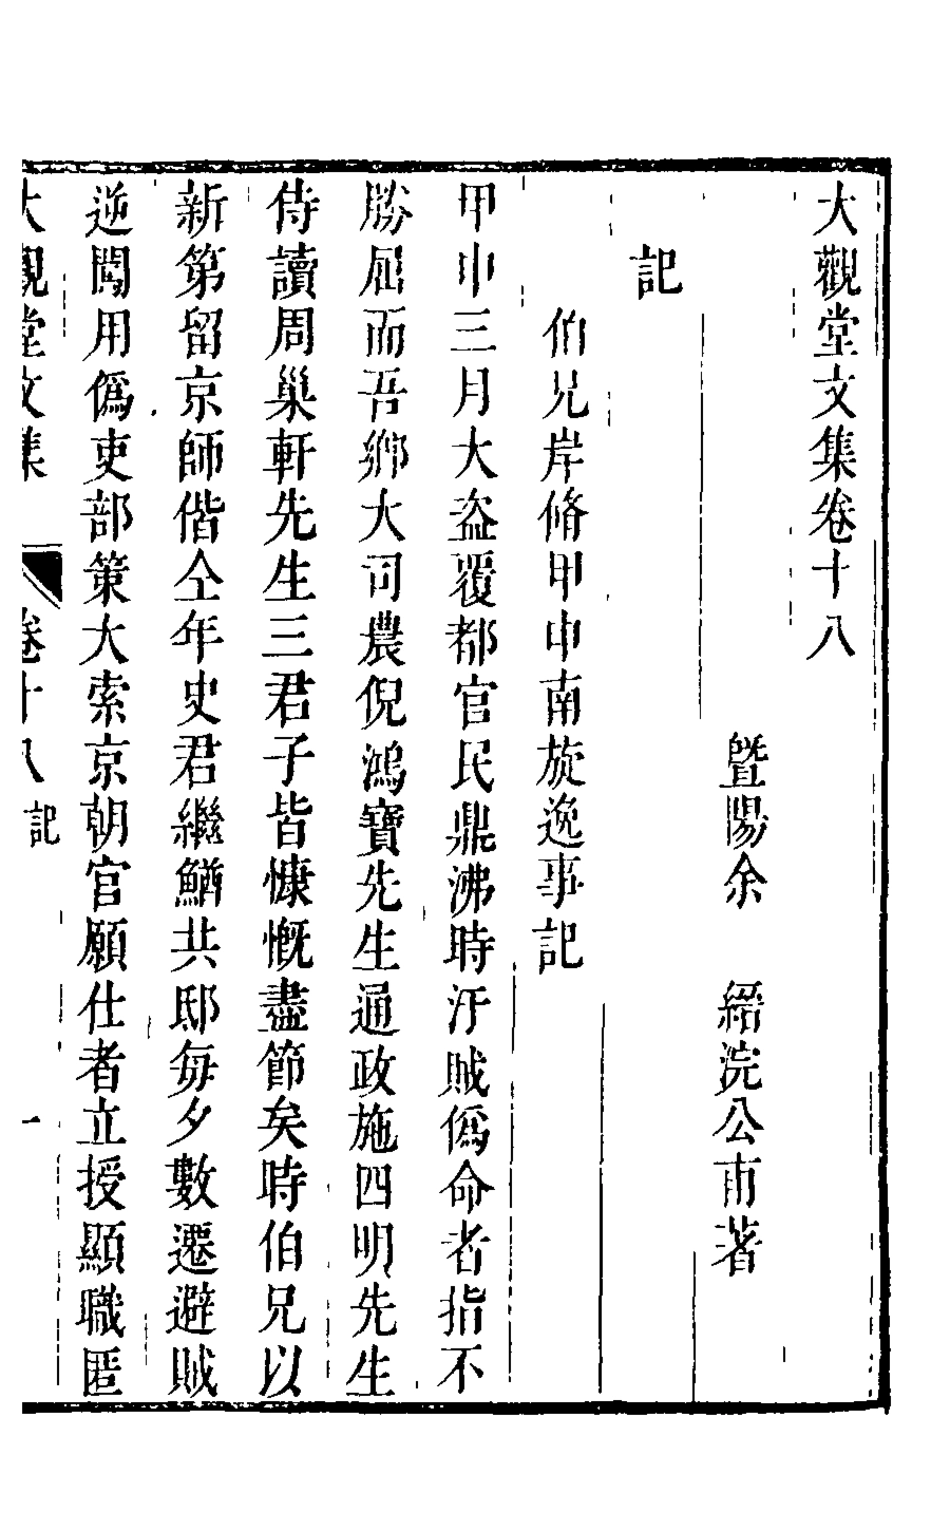 大觀堂文集卷十八
暨陽余 縉浣公甫著
記
伯兄岸脩甲申南旋逸事記
甲申三月大盜覆都官民鼎沸時汙賊僞命者指不
勝屈而吾鄉大司農倪鴻寶先生通政施四明先生
侍讀周巢軒先生三君子皆慷慨盡節矣時伯兄以
新第留京師偕仝年史君繼鰌共邸每夕數遷避賊
逆闖用僞吏部策大索京朝官願仕者立授顯職匿
大觀堂文集 卷十八 記 一